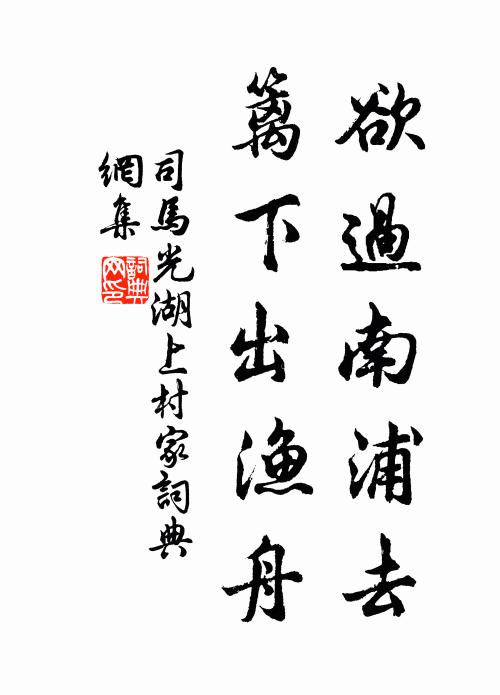 欲過南浦去
籬下出漁舟
司馬光湖上村家詞典
網集
詞典網印